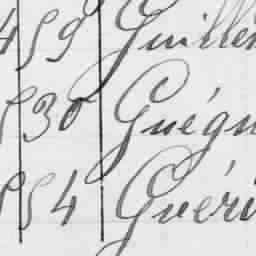 459 Guillé
530 Guégu
554 Guéri